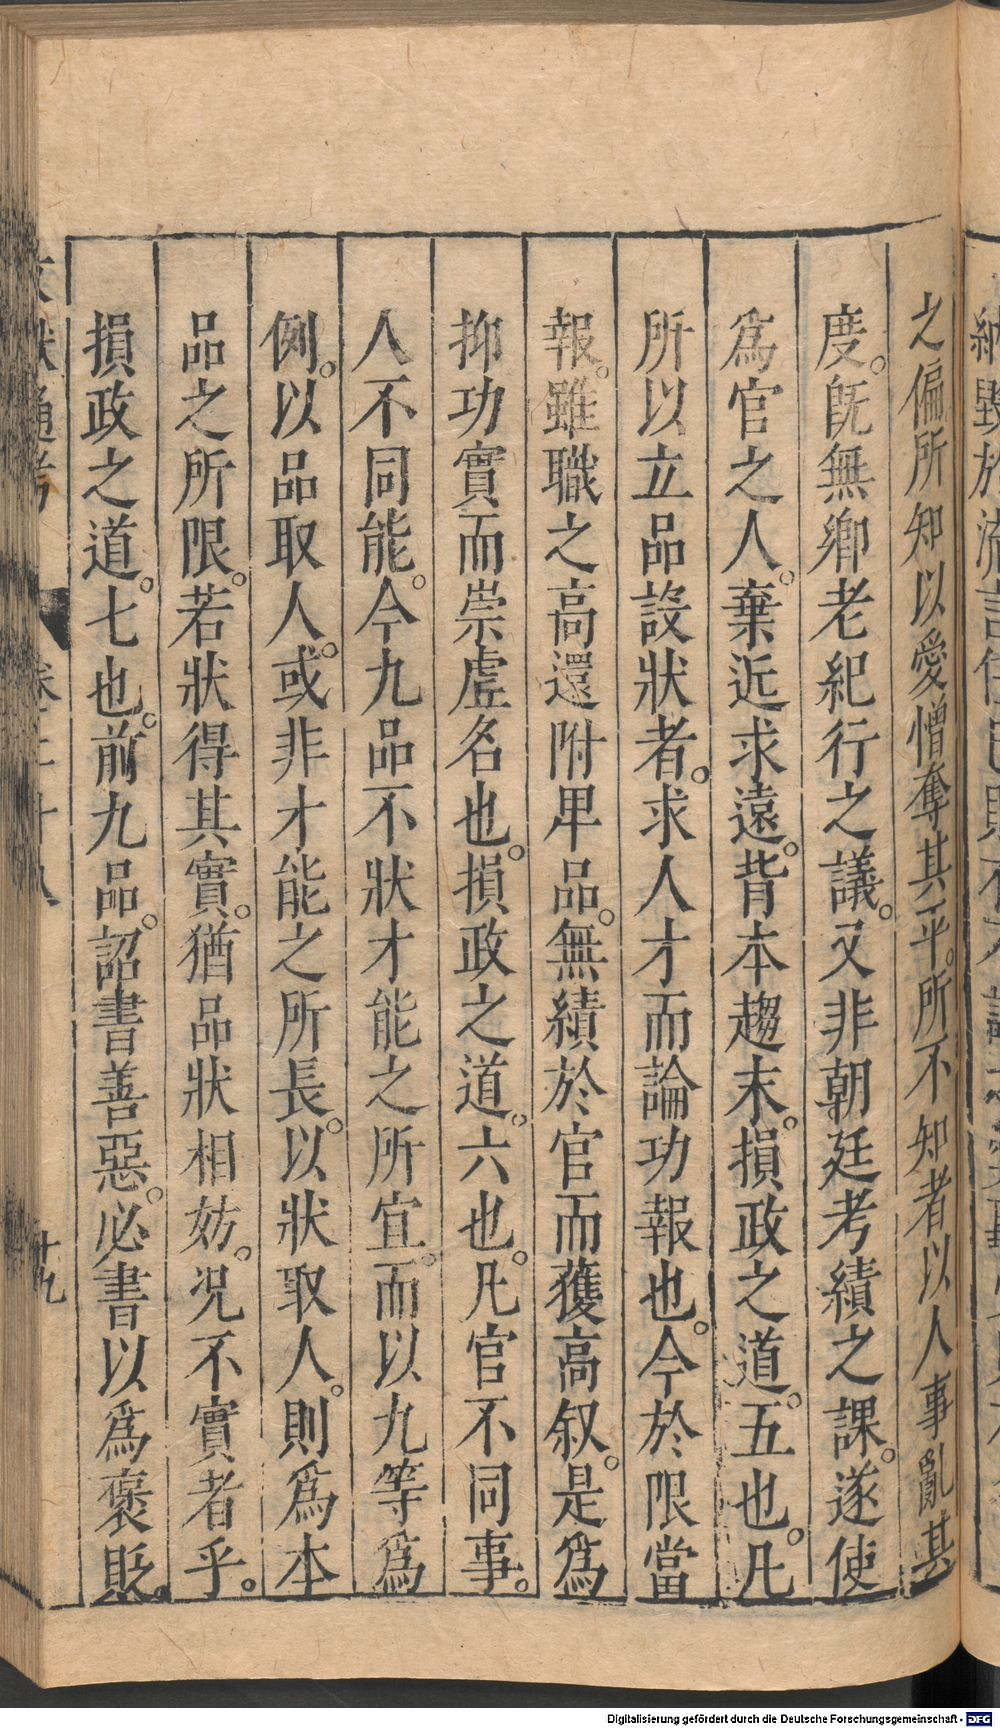 之偏所知以愛憎奪其平。所不知者以人事亂其
度。旣無鄉老紀行之議。又非朝廷考績之課。遂使
爲官之人。棄近求遠。背本趨末。損政之道。五也。凡
所以立品設狀者。求人才而論功報也。今於限當
報。雖職之高還附卑品。無績於官而獲高叙。是爲
抑功實而崇虛名也。損政之道。六也。凡官不同事。
人不同能。今九品不狀才能之所宜。而以九等爲
例。以品取人。或非才能之所長。以狀取人。則爲本
品之所限。若狀得其實。猶品狀相妨。况不實者乎。
損政之道。七也。前九品。詔書善惡。必書以爲褒貶。
十九
Digitalisierung gefördert durch die Deutsche Forschungsgemeinschaft - DFG